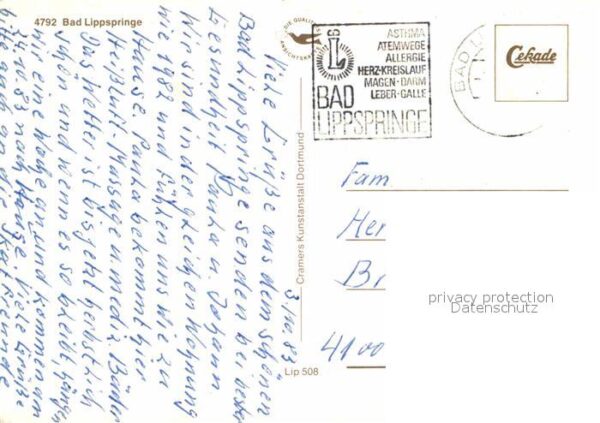 4792 Bad Lippspringe
3/10.83
Viele Grüße aus dem schönen
Bad Lippspringe senden bei bester
Gesundheit Paula u. Johann
Wir sind in der gleichen Wohnung
wie 1982 und fühlen uns wie zu
Hause. Paula bekommt hier
Massagen u mediz. Bäder
Das Wetter ist bis jetzt herbstlich
und wenn es so bleibt hängen
wir eine Woche an und kommen am
nach Hause. Viele Grüße
auch an die Skatfreunde
DIE QUALITÄTS
ANSICHTSKARTE
Cramers Kunstanstalt Dortmund
Lip 508
ASTHMA
ATEMWEGE
ALLERGIE
HERZ-KREISLAUF
MAGEN-DARM
LEBER-GALLE
BAD
LIPPSPRINGE
BAD LI
Cekade
Fam
Her
Br
4100
privacy protection
Datenschutz